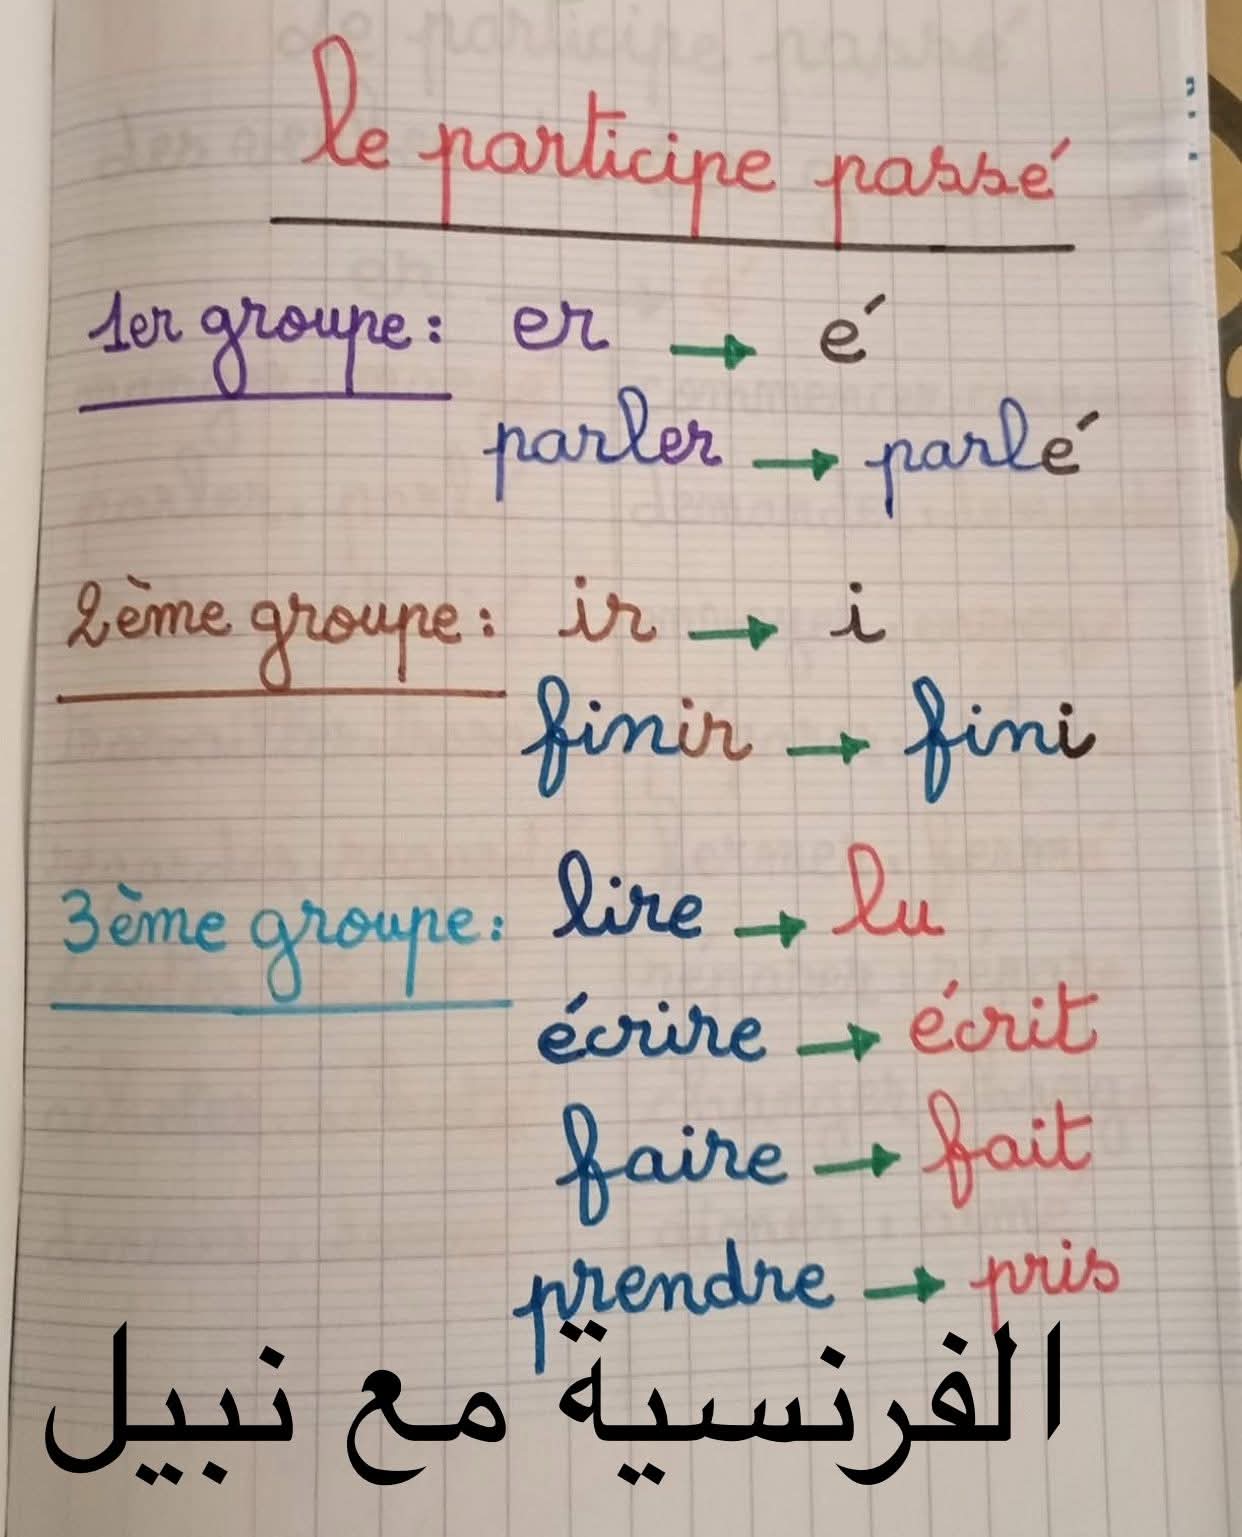 le participe passé
1er groupe : er → é
parler → parlé
2ème groupe : ir → i
finir → fini
3ème groupe : lire → lu
écrire → écrit
faire → fait
prendre → pris
الفرنسية مع نبيل